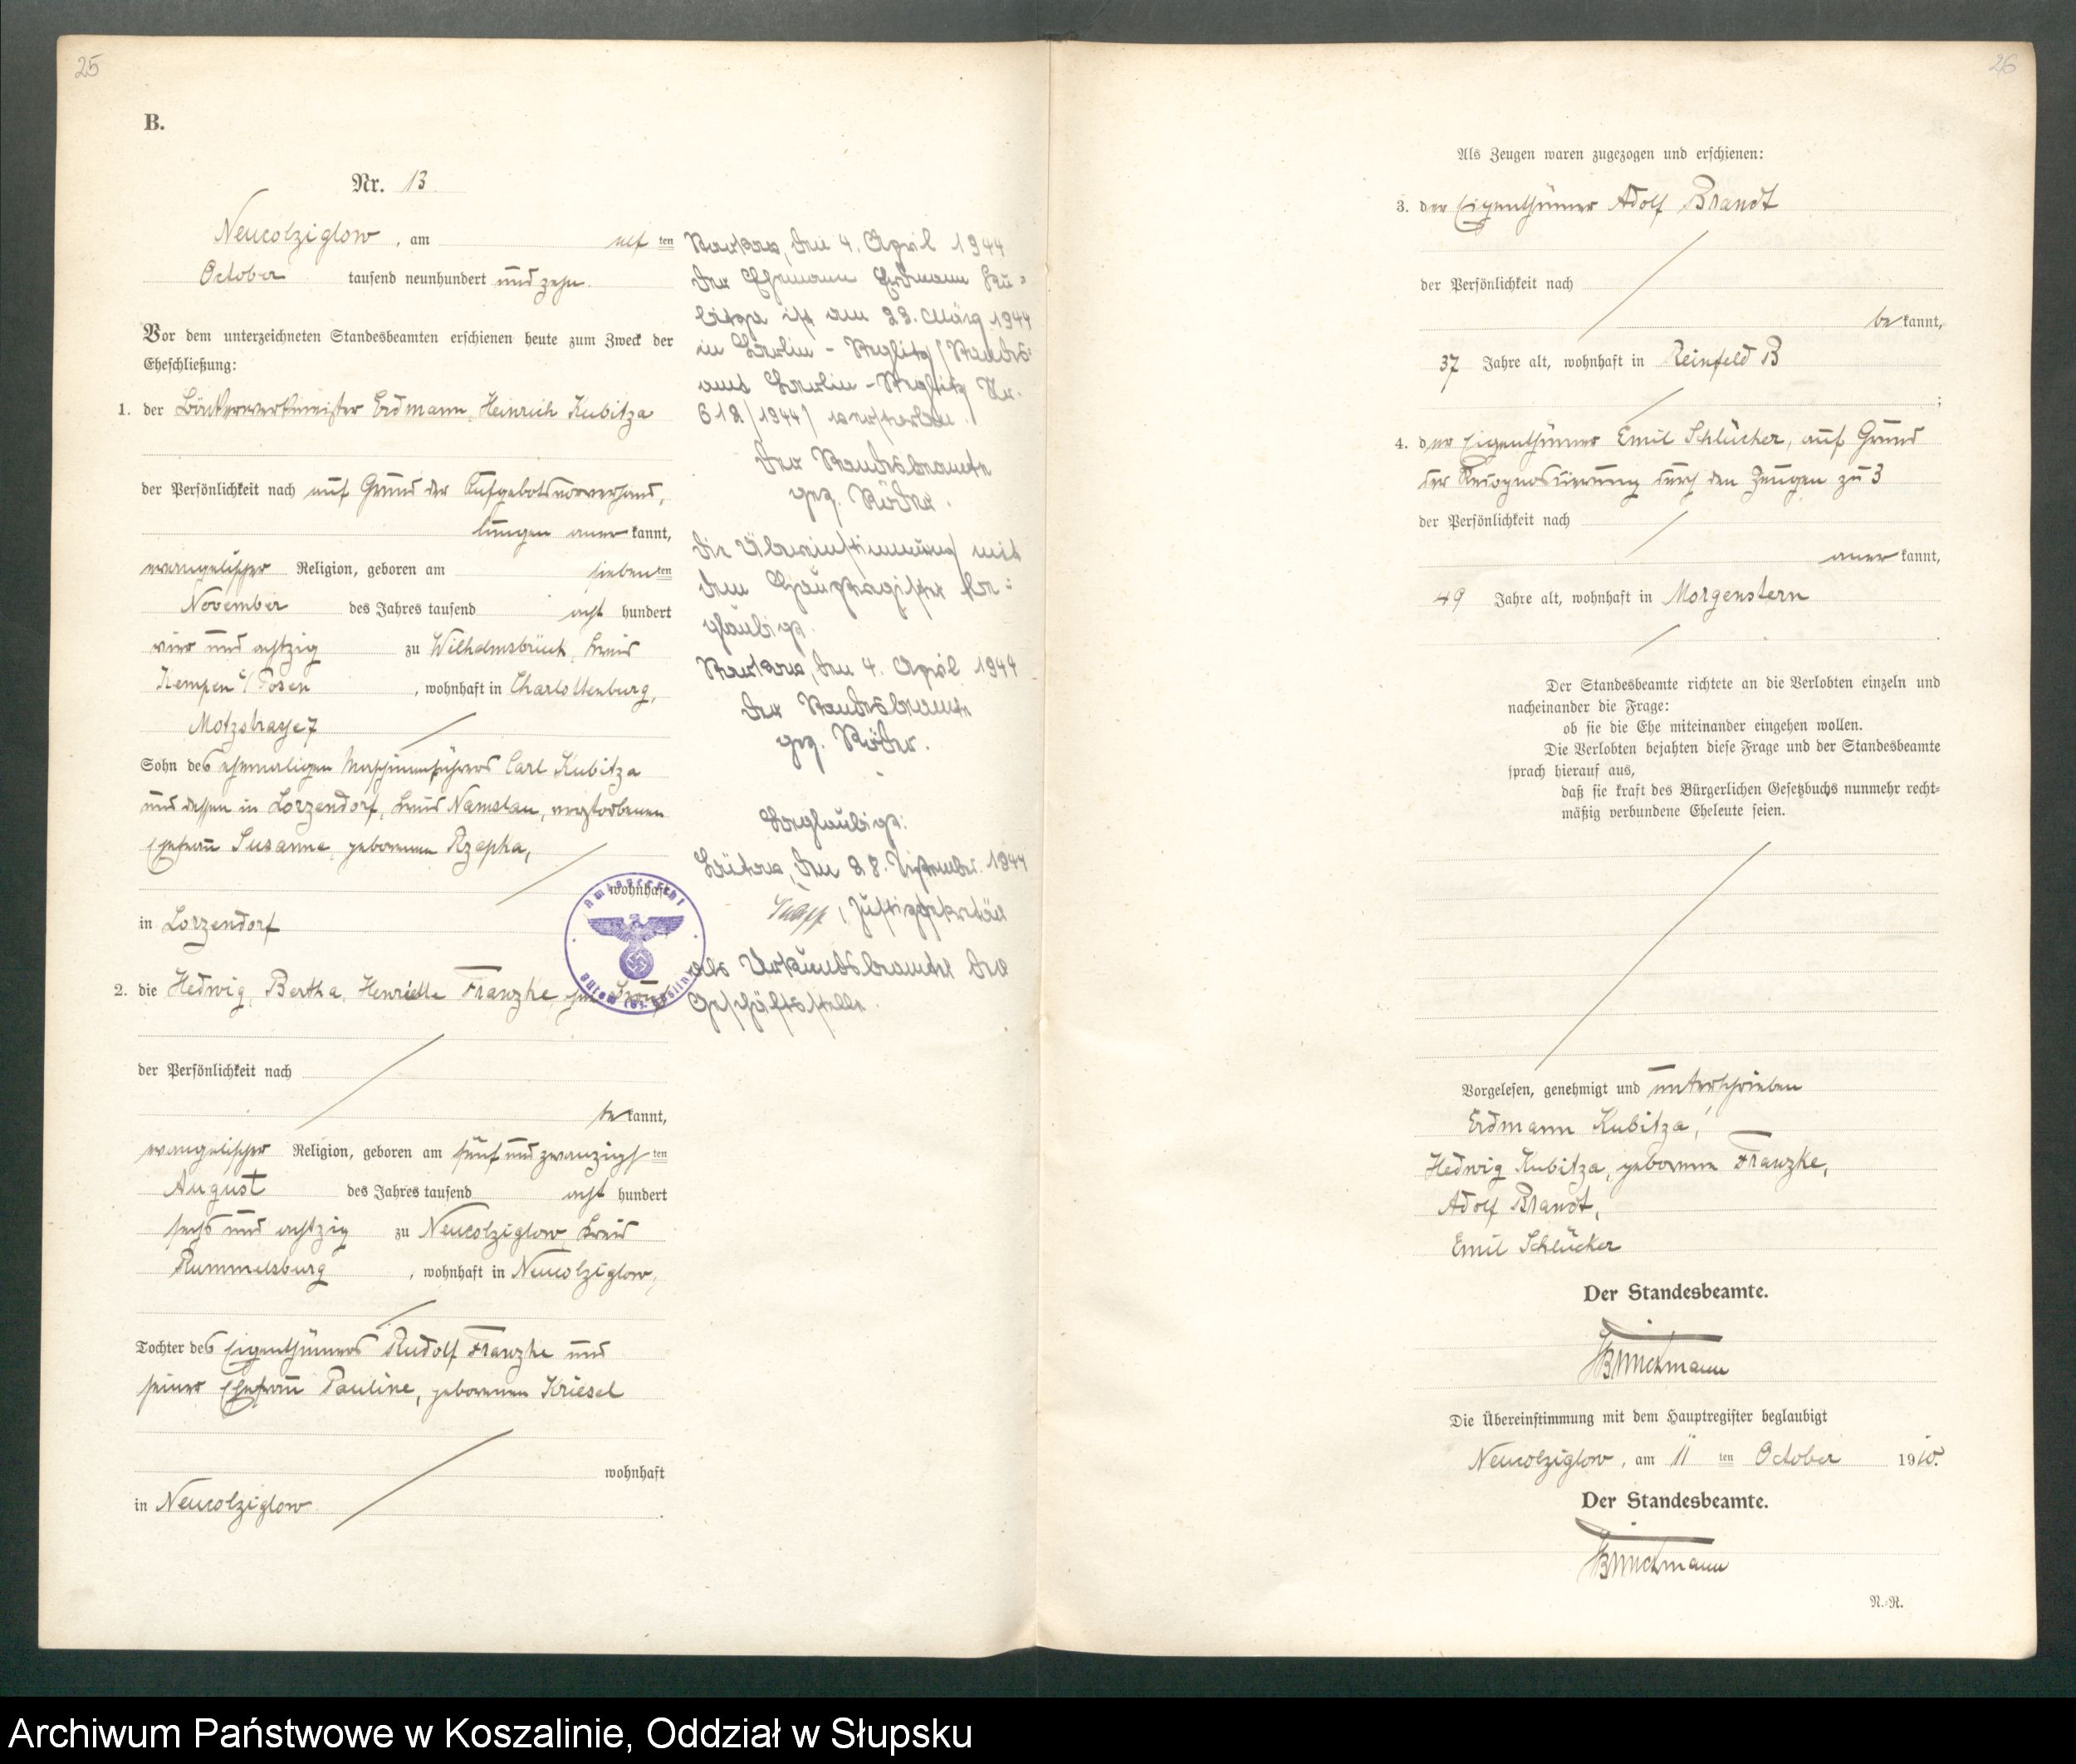 25
B.
Nr. 13.
Neucolziglow, am elften
October tausend neunhundert und zehn.
Vor dem unterzeichneten Standesbeamten erschienen heute zum Zweck der
Eheschließung:
1. der Bäckerwerkmeister Erdmann, Heinrich Kubitza
der Persönlichkeit nach auf Grund der Aufgebotsverhand,
lungen anerkannt,
evangelischer Religion, geboren am siebenten
November des Jahres tausend acht hundert
vier und achtzig zu Wilhelmsbrück, Kreis
Kempen i/Posen, wohnhaft in Charlottenburg,
Motzstrasse 7
Sohn des ehemaligen Maschinenführers Carl Kubitza
und dessen in Lorzendorf, Kreis Namslau, verstorbenen
Ehefrau Susanne, geborenen Rzepka,
wohnhaft
in Lorzendorf
2. die Hedwig, Bertha, Henriette Franzke, ohne
der Persönlichkeit nach
bekannt,
evangelischer Religion, geboren am fünf und zwanzigsten
August des Jahres tausend acht hundert
sechs und achtzig zu Neucolziglow, Kreis
Rummelsburg, wohnhaft in Neucolziglow,
Tochter des Eigenthümers Rudolf Franzke und
seiner Ehefrau Pauline, geborenen Kriesel
wohnhaft
in Neucolziglow.
den 4. April 1944
Der Ehemann Erdmann Ku-
bitza ist am 23. März 1944
in Berlin - Steglitz (Standes-
amt Berlin - Steglitz Nr.
612/1944) verstorben.
Der Standesbeamte
gez. Röder.
Die Übereinstimmung mit
dem Hauptregister be-
glaubigt.
den 4. April 1944
Der Standesbeamte
gez. Röder.
Beglaubigt:
Bütow, den 28. September 1944
Justizsekretär
als Urkundsbeamter der
Geschäftsstelle.
Amtsgericht
Bütow (Bz. Köslin)
26
Als Zeugen waren zugezogen und erschienen:
3. der Eigenthümer Adolf Brandt
der Persönlichkeit nach
bekannt,
37 Jahre alt, wohnhaft in Reinfeld B
;
4. der Eigenthümer Emil Schlücker, auf Grund
der Rekognoszierung durch den Zeugen zu 3
der Persönlichkeit nach
anerkannt,
49 Jahre alt, wohnhaft in Morgenstern
Der Standesbeamte richtete an die Verlobten einzeln und
nacheinander die Frage:
ob sie die Ehe miteinander eingehen wollen.
Die Verlobten bejahten diese Frage und der Standesbeamte
sprach hierauf aus,
daß sie kraft des Bürgerlichen Gesetzbuchs nunmehr recht-
mäßig verbundene Eheleute seien.
Vorgelesen, genehmigt und unterschrieben
Erdmann Kubitza,
Hedwig Kubitza, geborene Franzke,
Adolf Brandt,
Emil Schlücker
Der Standesbeamte.
Die Übereinstimmung mit dem Hauptregister beglaubigt
Neucolziglow, am 11ten October 1910.
Der Standesbeamte.
N.-R.
Archiwum Państwowe w Koszalinie, Oddział w Słupsku